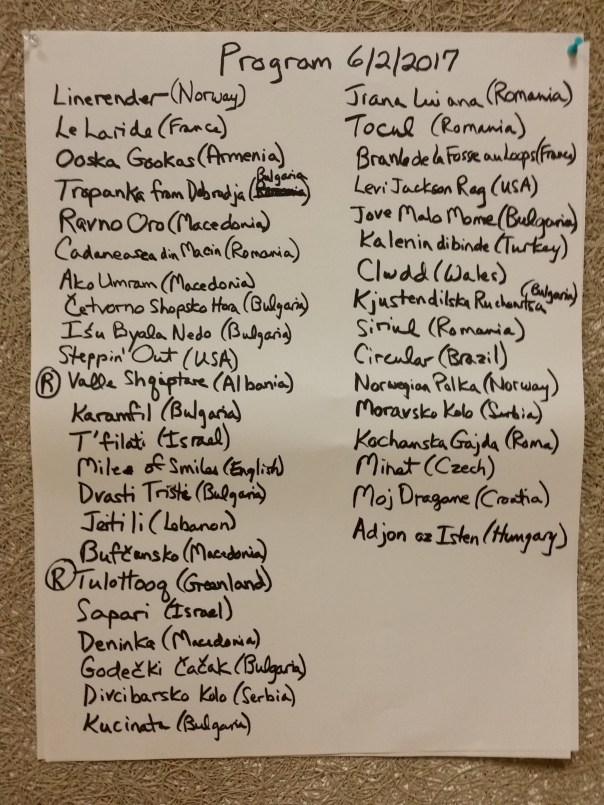 Program 6/2/2017
Linerender (Norway)
Le Laride (France)
Ooska Gookas (Armenia)
Tropanka from Dobrodja (Bulgaria)
Ravno Oro (Macedonia)
Cadaneasea din Macin (Romania)
Ako Umram (Macedonia)
Četvorno Shopsko Hora (Bulgaria)
Išu Byala Nedo (Bulgaria)
Steppin' Out (USA)
R Valle Shqiptare (Albania)
Karamfil (Bulgaria)
T'filati (Israel)
Miles of Smiles (English)
Dvasti Tristé (Bulgaria)
(Lebanon)
Bufčansko (Macedonia)
R Tulottoog (Greenland)
Sapari (Israel)
Deninka (Macedonia)
Godečki Čačak (Bulgaria)
Divcibarsko Kolo (Serbia)
Kucinata (Bulgaria)
Jiana Lui ana (Romania)
Tocul (Romania)
Branle de la Fosse au Loops (France)
Levi Jackson Rag (USA)
Jove Malo Mome (Bulgaria)
Kalenin dibinde (Turkey)
Clwdd (Wales)
Kjustendilska Ruchenitsa (Bulgaria)
Siriul (Romania)
Circular (Brazil)
Norwegian Polka (Norway)
Moravsko Kolo (Serbia)
Kochanska Gajda (Roma)
Minet (Czech)
Moj Dragane (Croatia)
Adjon az Isten (Hungary)